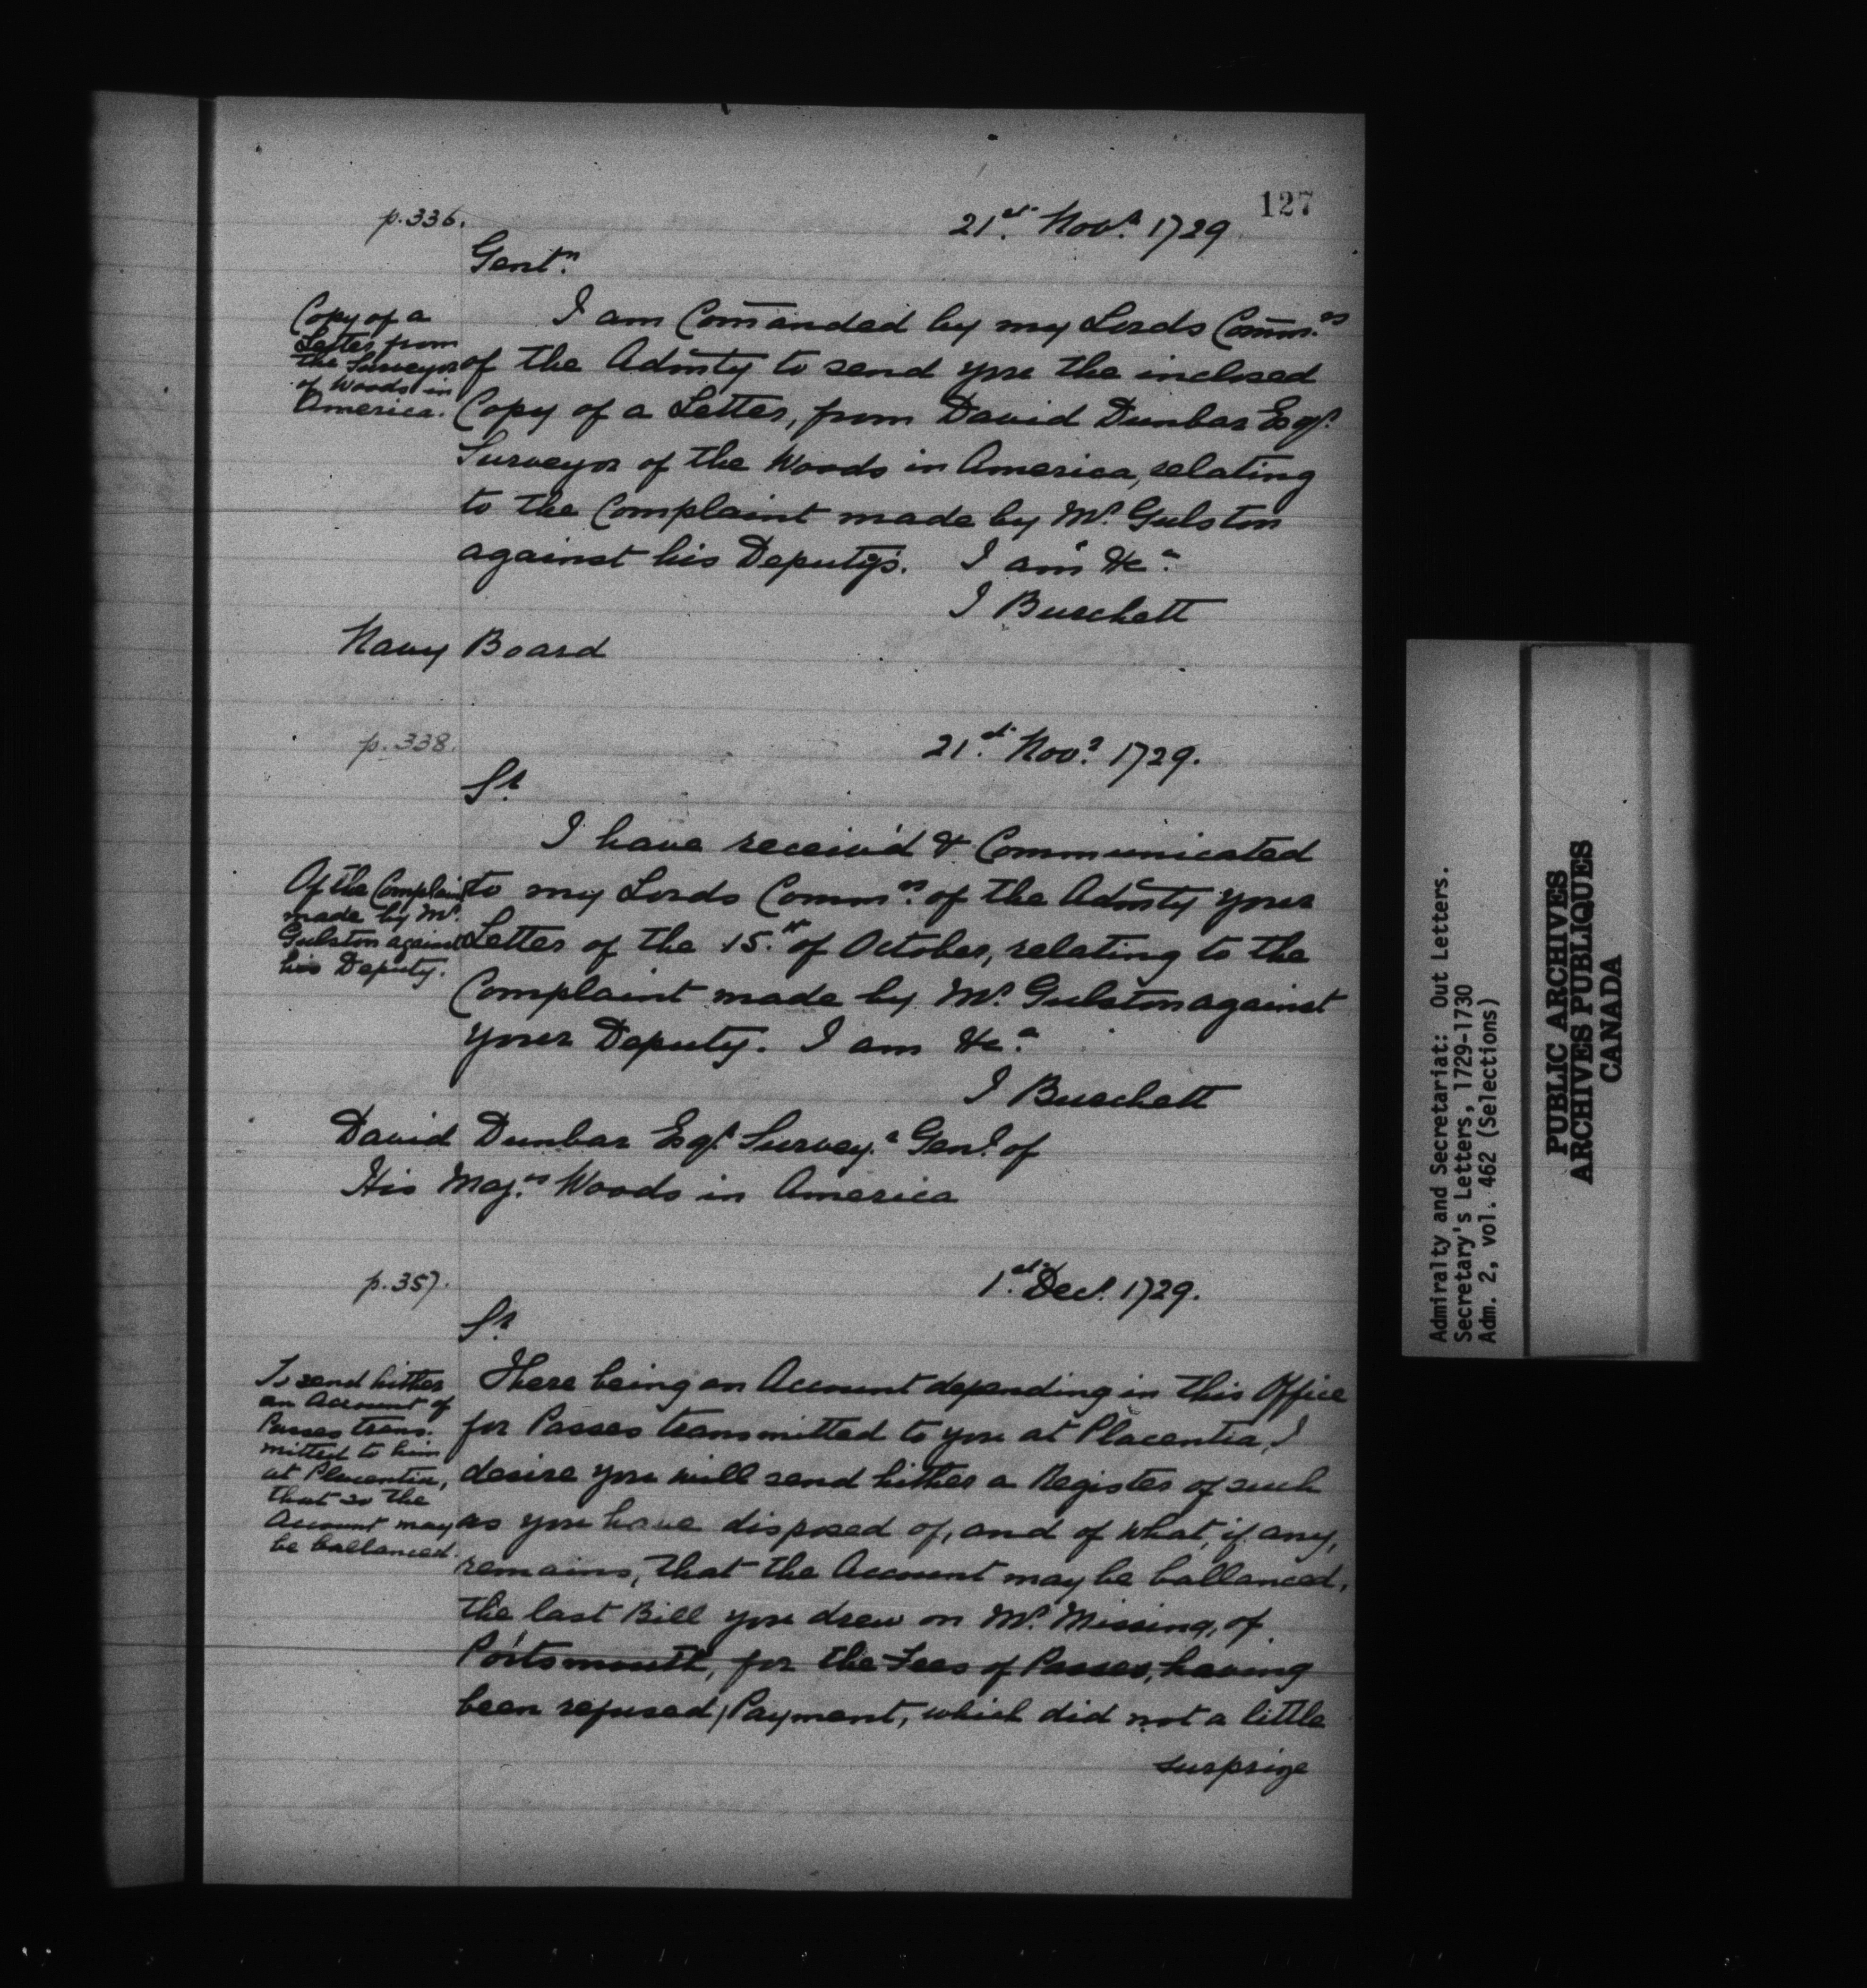 127
p.336.
21st Novr 1729
Gentn
Copy of a
Letter from
the Surveyor
of Woods in
America.
I am Com̄anded by my Lords Com̄rs
of the Adm̃ty to send you the inclosed
Copy of a Letter, from David Dunbar Esqr
Surveyor of the Woods in America, relating
to the Complaint made by Mr Gulston
against his Deputy's. I am &ca
J Burchett
Navy Board
p.338.
21st Novr 1729.
Sr
Of the Complaint
made by Mr
Gulston against
his Deputy.
I have receiv'd & Communicated
to my Lords Commrs of the Adm̃ty your
Letter of the 15th of October, relating to the
Complaint made by Mr Gulston against
your Deputy. I am &ca
J Burchett
David Dunbar Esqr Surveyr Genl of
His Majts Woods in America
p.357.
1st Decr 1729.
Sr
To send hither
an Account of
Passes trans-
mitted to him
at Placentia,
that so the
Account may
be ballanced.
There being an Account depending in this Office
for Passes transmitted to you at Placentia, I
desire you will send hither a Register of such
as you have disposed of, and of what, if any,
remains, that the Account may be ballanced,
the last Bill you drew on Mr Missing, of
Portsmouth, for the Fees of Passes, having
been refused Payment, which did not a little
surprize
Admiralty and Secretariat: Out Letters.
Secretary's Letters, 1729-1730
Adm. 2, vol. 462 (Selections)
PUBLIC ARCHIVES
ARCHIVES PUBLIQUES
CANADA